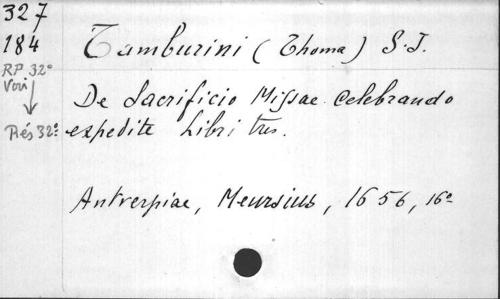 327
184
RP 32°
Voir
Rés 32°
Tamburini (Thoma) S.J.
De Sacrificio Missae celebrando
expedite Libri tres.
Antverpiae, Meursius, 1656, 16°